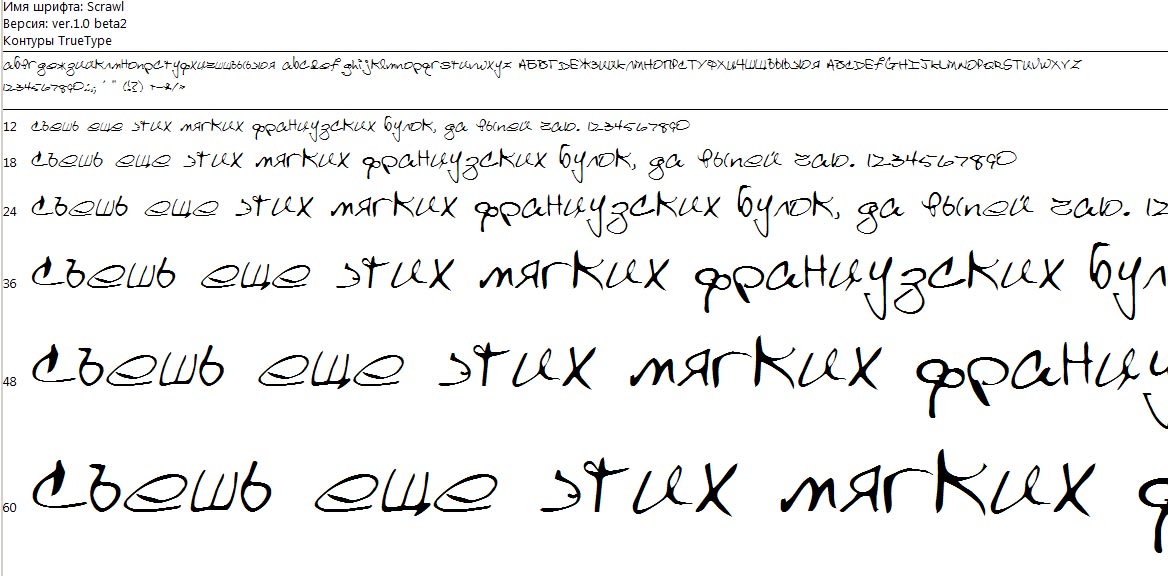 Имя шрифта: Scrawl
Версия: ver.1.0 beta2
Контуры TrueType
абвгдежзийклмнопрстуфхцчшщъыьэюя abcdefghijklmnopqrstuvwxyz АБВГДЕЖЗИЙКЛМНОПРСТУФХЦЧШЩЪЫЬЭЮЯ ABCDEFGHIJKLMNOPQRSTUVWXYZ
1234567890.:,; ' " (!?) +-*/=
12 съешь еще этих мягких французских булок, да выпей чаю. 1234567890
18 съешь еще этих мягких французских булок, да выпей чаю. 1234567890
24 съешь еще этих мягких французских булок, да выпей чаю. 12
36 съешь еще этих мягких французских бул
48 съешь еще этих мягких францу
60 съешь еще этих мягких ф